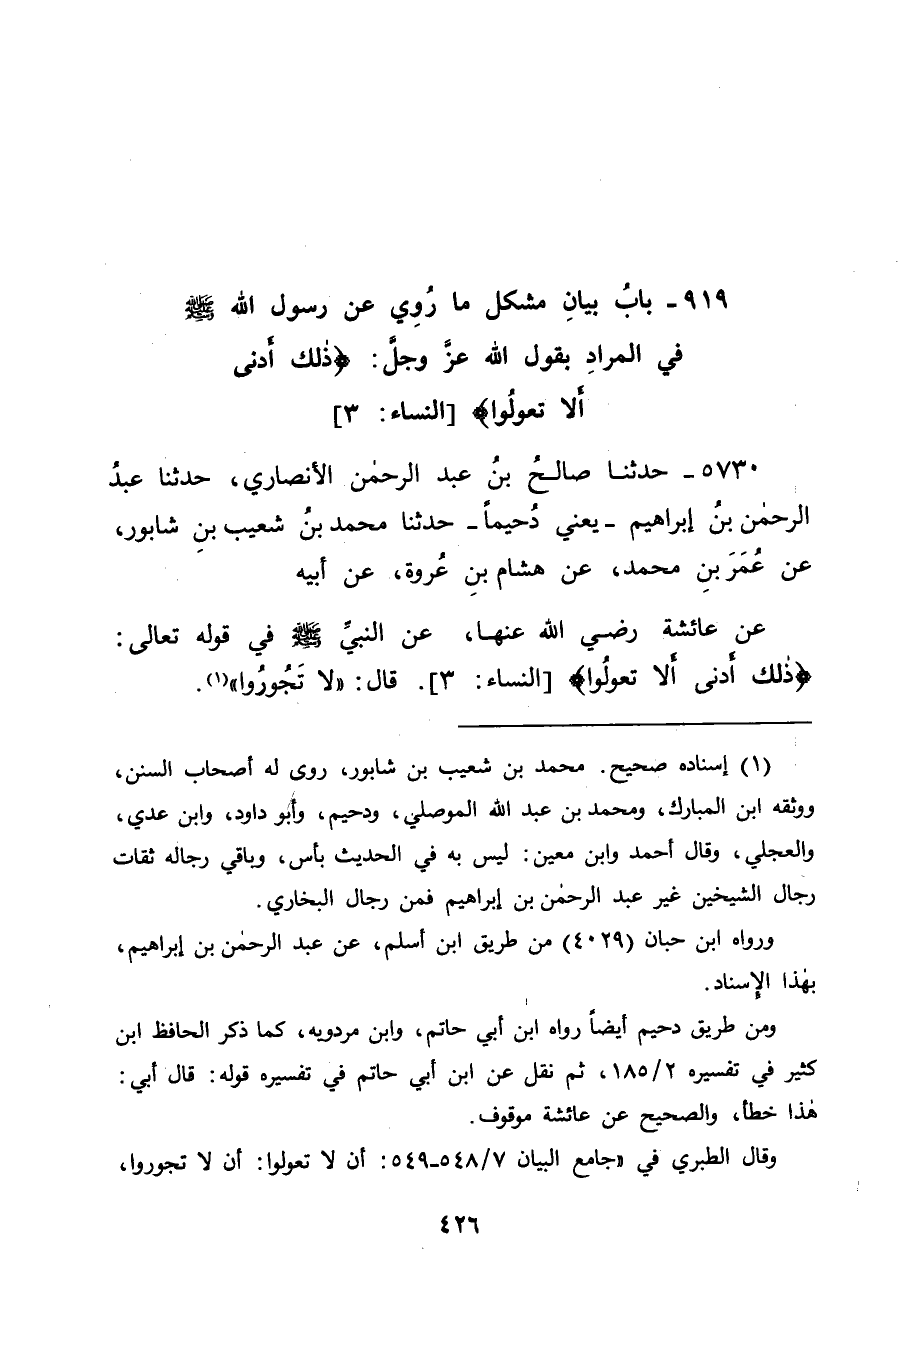 ٩١٩ـ بابُ بيانِ مشكل ما رُوِي عن رسول الله ﷺ
في المرادِ بقول الله عزَّ وجلَّ: ﴿ذٰلك أَدنى
أَلا تعولُوا﴾ [النساء: ٣]
٥٧٣٠ـ حدثنـا صالـحُ بنُ عبد الرحمٰن الأنصاري، حدثنا عبدُ
الرحمٰن بنُ إبراهيم ـ يعني دُحيماً ـ حدثنا محمد بنُ شعيب بنِ شابور،
عن عُمَرَ بنِ محمد، عن هشام بنِ عُروة، عن أبيه
عن عائشة رضـي الله عنهـا، عن النبيِّ ﷺ في قوله تعالى:
﴿ذٰلك أَدنى أَلا تعولُوا﴾ [النساء: ٣]. قال: «لا تَجُورُوا»(١).
(١) إسناده صحيح. محمد بن شعيب بن شابور، روى له أصحاب السنن،
ووثقه ابن المبارك، ومحمد بن عبد الله الموصلي، ودحيم، وأبو داود، وابن عدي،
والعجلي، وقال أحمد وابن معين: ليس به في الحديث بأس، وباقي رجاله ثقات
رجال الشيخين غير عبد الرحمٰن بن إبراهيم فمن رجال البخاري.
ورواه ابن حبان (٤٠٢٩) من طريق ابن أسلم، عن عبد الرحمٰن بن إبراهيم،
بهٰذا الإسناد.
ومن طريق دحيم أيضاً رواه ابن أبي حاتم، وابن مردويه، كما ذكر الحافظ ابن
كثير في تفسيره ١٨٥/٢، ثم نقل عن ابن أبي حاتم في تفسيره قوله: قال أبي:
هٰذا خطأ، والصحيح عن عائشة موقوف.
وقال الطبري في «جامع البيان ٥٤٨/٧ـ٥٤٩: أن لا تعولوا: أن لا تجوروا،
٤٢٦